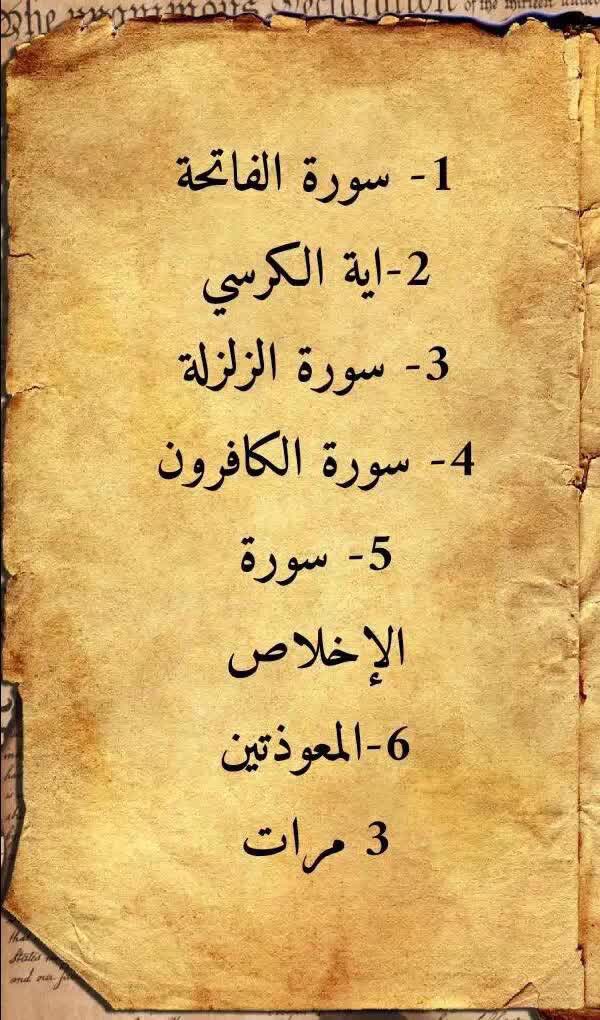 The unanimous Declaration of the thirteen united
1- سورة الفاتحة
2-اية الكرسي
3- سورة الزلزلة
4- سورة الكافرون
5- سورة
الإخلاص
6-المعوذتين
3 مرات
States
and our